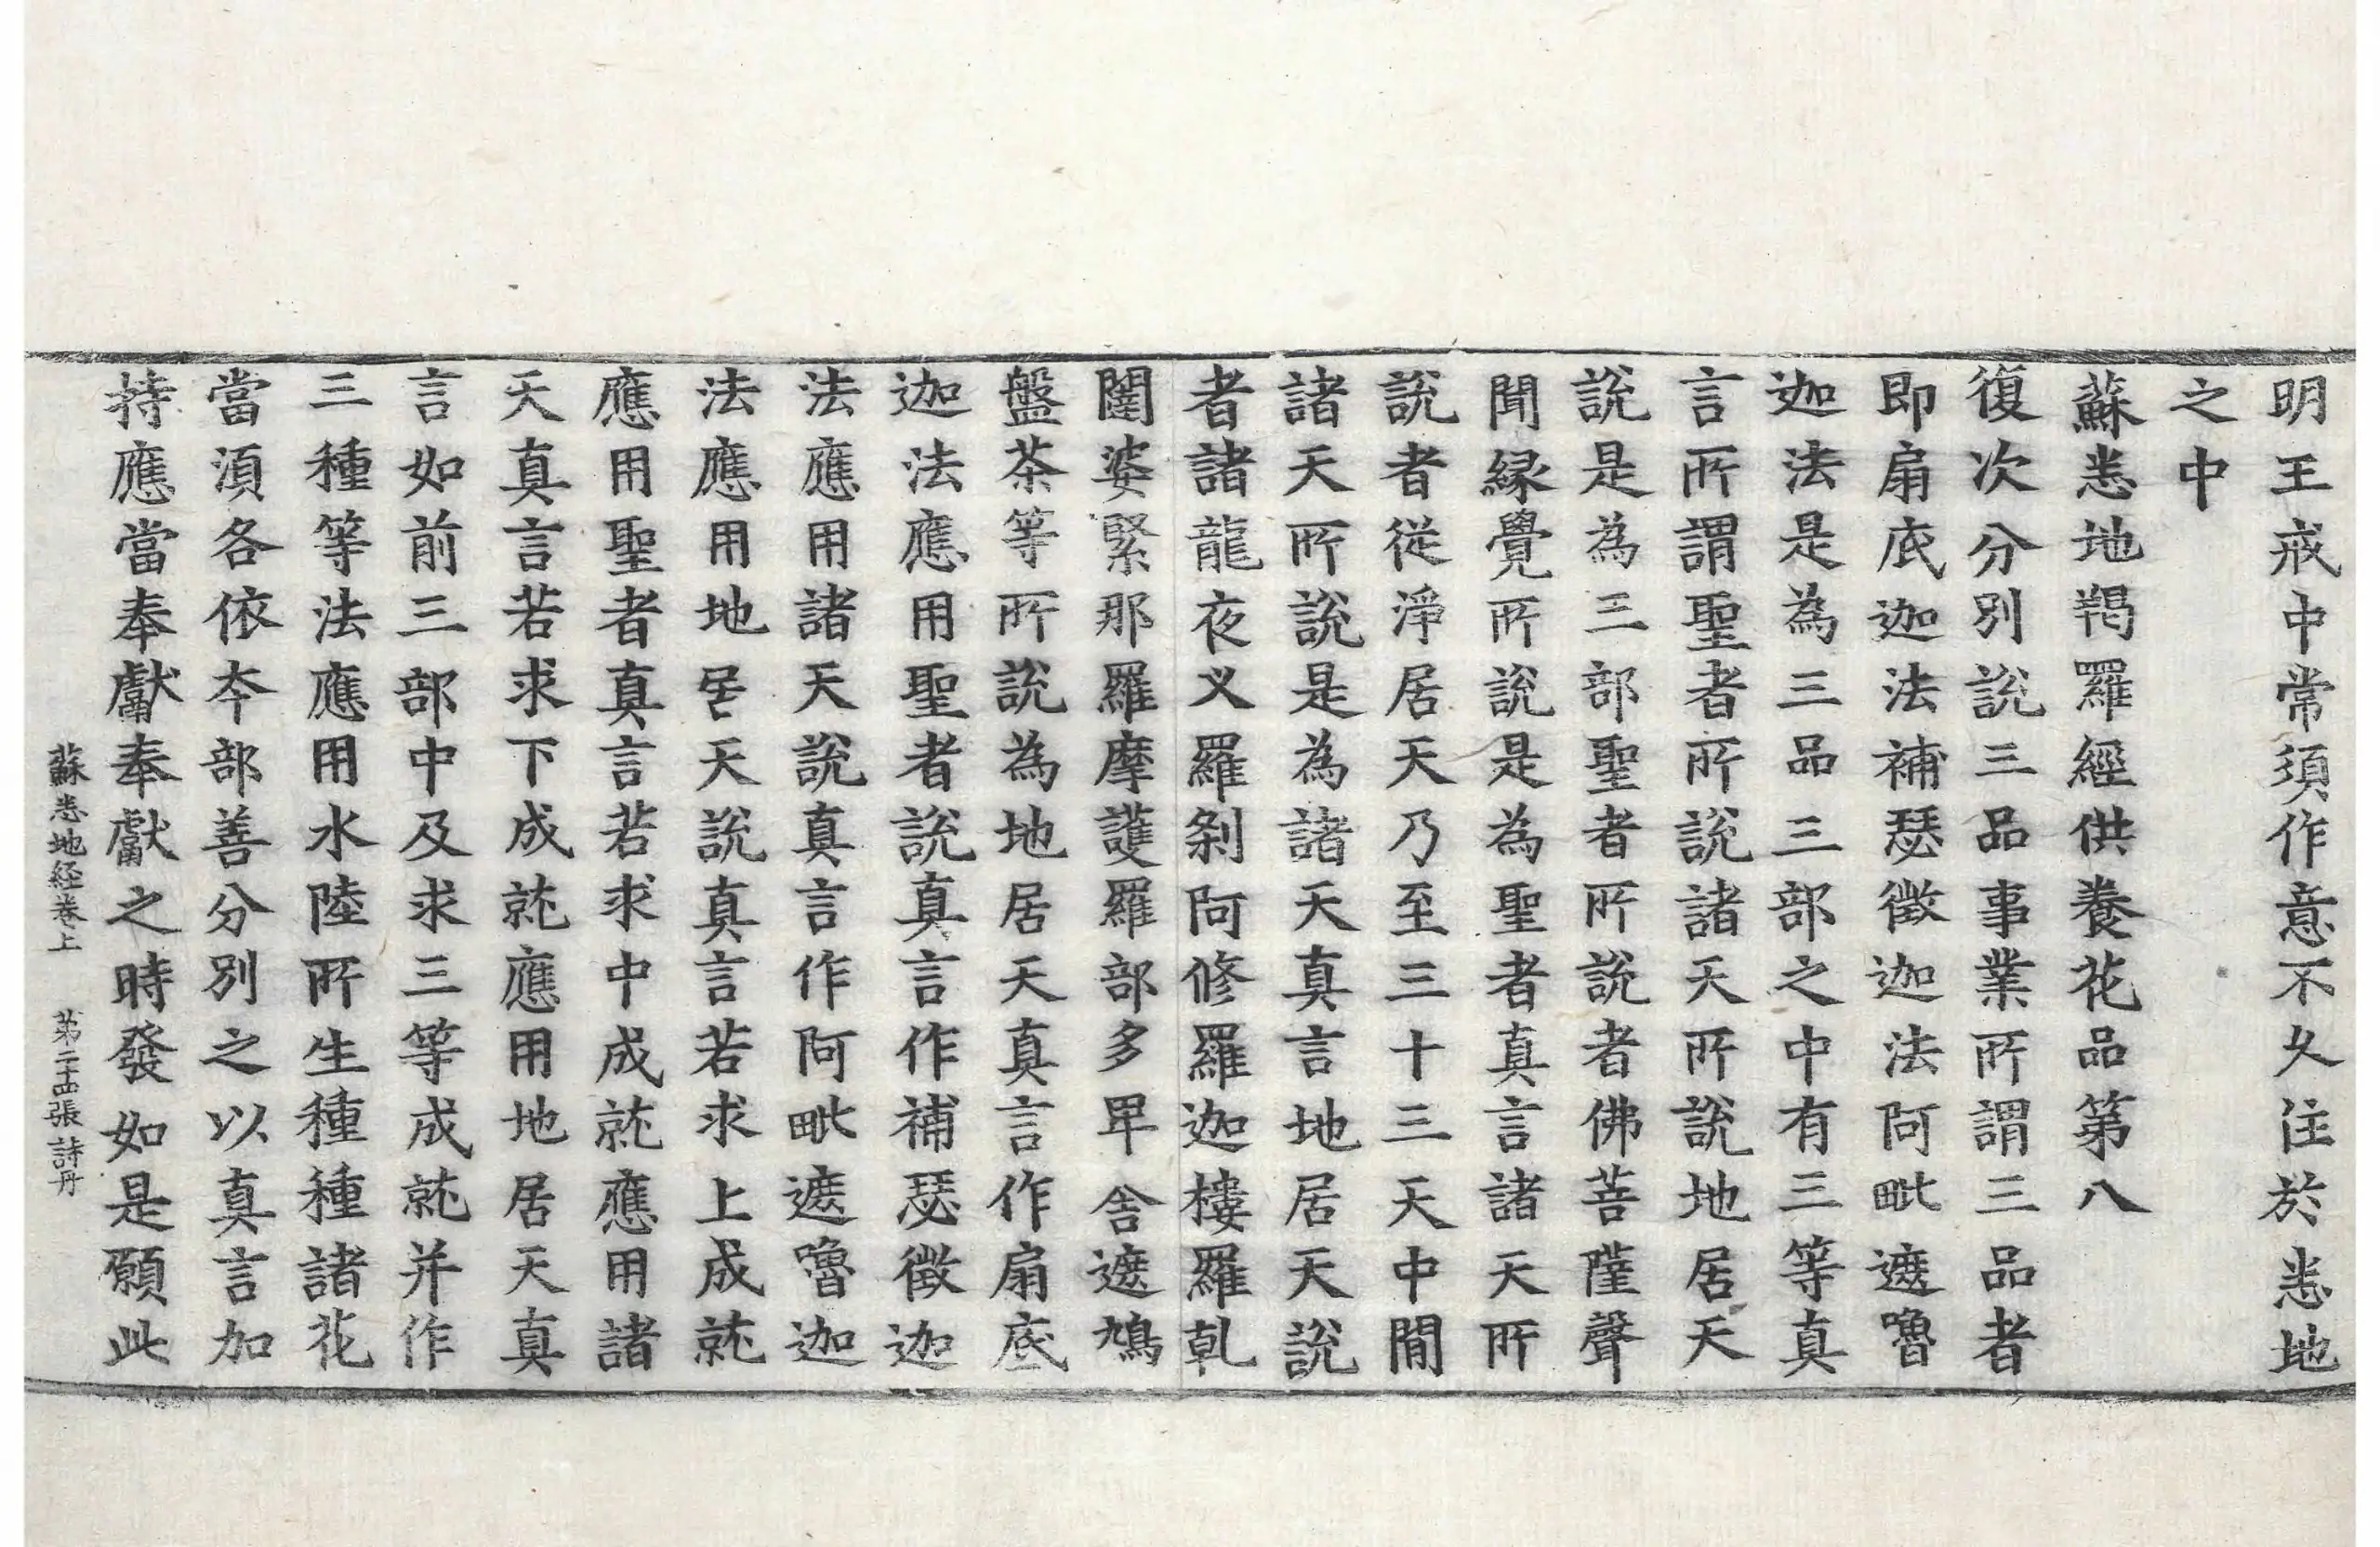 明王戒中常須作意不久住於悉地
之中
蘇悉地羯羅經供養花品第八
復次分別說三品事業所謂三品者
即扇底迦法補瑟徵迦法阿毗遮嚕
迦法是為三品三部之中有三等真
言所謂聖者所說諸天所說地居天
說是為三部聖者所說者佛菩薩聲
聞緣覺所說是為聖者真言諸天所
說者從淨居天乃至三十三天中間
諸天所說是為諸天真言地居天說
者諸龍夜义羅剎阿修羅迦樓羅乹
闥婆緊那羅摩護羅部多畢舍遮鳩
盤茶等所說為地居天真言作扇底
迦法應用聖者說真言作補瑟徵迦
法應用諸天說真言作阿毗遮嚕迦
法應用地居天說真言若求上成就
應用聖者真言若求中成就應用諸
天真言若求下成就應用地居天真
言如前三部中及求三等成就并作
三種等法應用水陸所生種種諸花
當須各依夲部善分別之以真言加
持應當奉獻奉獻之時發如是願此
蘇悉地経卷上　第二十四張　詩丹